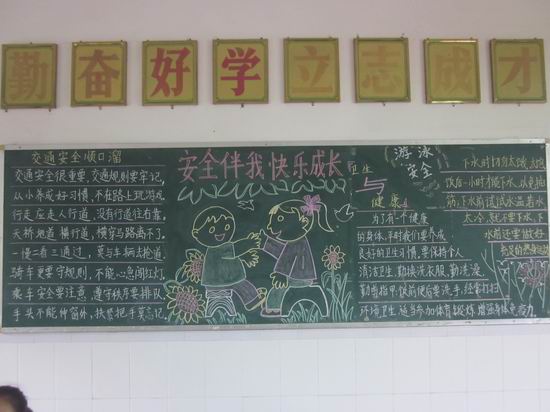 勤奋好学立志成才
安全伴我快乐成长
交通安全顺口溜
交通安全很重要,交通规则要牢记,
从小养成好习惯,不在路上玩游戏。
行走应走人行道,没有行道往右靠,
天桥地道横行道,横穿马路离不了。
一慢二看三通过,莫与车辆去抢道。
骑车更要守规则,不能心急闯红灯。
乘车安全要注意,遵守秩序要排队,
手头不能伸窗外,扶紧把手莫忘记。
卫生
与
健康
为了有一个健康
的身体,平时我们要养成
良好的卫生习惯,要保持个人
清洁卫生,勤换洗衣服,勤洗澡,
勤剪指甲,饭前便后要洗手,经常打扫
环境卫生,适当参加体育锻炼,增强身体免疫力。
游泳
安全
下水时切勿太饿、太饱
饭后一小时才能下水,以免抽
筋,下水前试试水温,若水
太冷,就不要下水,下
水前还要做好